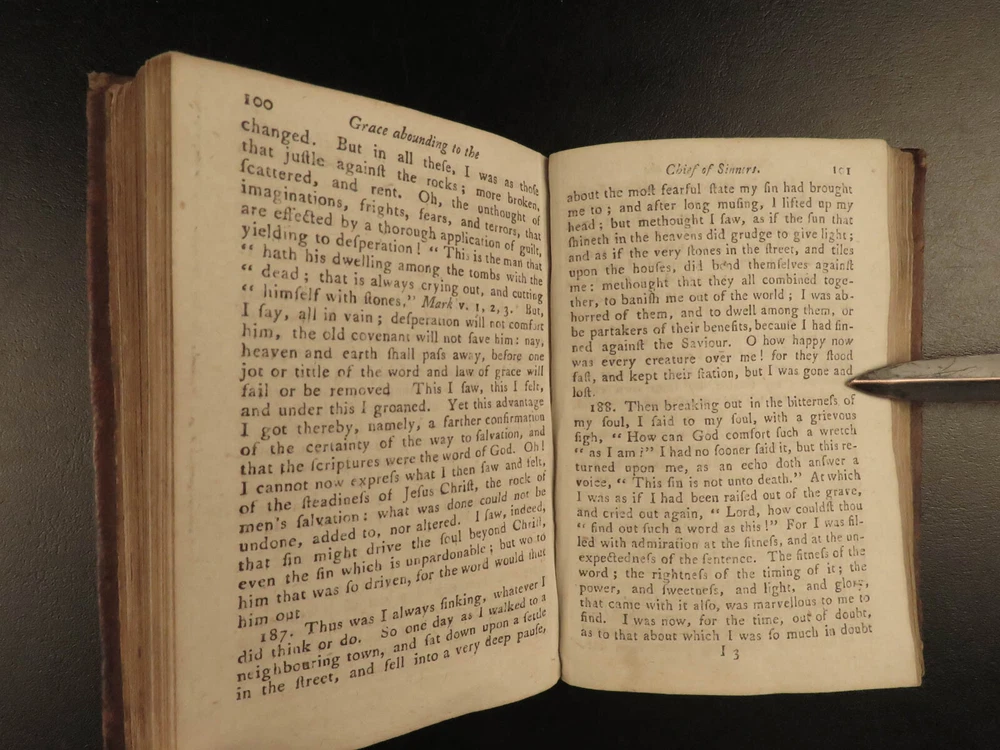 100
Grace abounding to the
changed. But in all theſe, I was as thoſe
that juſtle againſt the rocks; more broken,
ſcattered, and rent. Oh, the unthought of
imaginations, frights, fears, and terrors, that
are effected by a thorough application of guilt,
yielding to deſperation! “ This is the man that
“ hath his dwelling among the tombs with the
“ dead; that is always crying out, and cutting
“ himſelf with ſtones,” Mark v. 1, 2, 3. But,
I ſay, all in vain; deſperation will not comfort
him, the old covenant will not ſave him: nay,
heaven and earth ſhall paſs away, before one
jot or tittle of the word and law of grace will
fail or be removed This I ſaw, this I felt,
and under this I groaned. Yet this advantage
I got thereby, namely, a farther confirmation
of the certainty of the way to ſalvation, and
that the ſcriptures were the word of God. Oh!
I cannot now expreſs what I then ſaw and felt,
of the ſteadineſs of Jeſus Chriſt, the rock of
men's ſalvation: what was done could not be
undone, added to, nor altered. I ſaw, indeed,
that ſin might drive the ſoul beyond Chriſt,
even the ſin which is unpardonable; but wo to
him that was ſo driven, for the word would ſhut
him out
187. Thus was I always ſinking, whatever I
did think or do. So one day as I walked to a
neighbouring town, and ſat down upon a ſettle
in the ſtreet, and fell into a very deep pauſe,
Chief of Sinners. 101
about the moſt fearful ſtate my ſin had brought
me to; and after long muſing, I lifted up my
head; but methought I ſaw, as if the ſun that
ſhineth in the heavens did grudge to give light;
and as if the very ſtones in the ſtreet, and tiles
upon the houſes, did bend themſelves againſt
me: methought that they all combined toge-
ther, to baniſh me out of the world; I was ab-
horred of them, and to dwell among them, or
be partakers of their benefits, becauſe I had ſin-
ned againſt the Saviour. O how happy now
was every creature over me! for they ſtood
faſt, and kept their ſtation, but I was gone and
loſt.
188. Then breaking out in the bitterneſs of
my ſoul, I ſaid to my ſoul, with a grievous
ſigh, “ How can God comfort ſuch a wretch
“ as I am?” I had no ſooner ſaid it, but this re-
turned upon me, as an echo doth anſwer a
voice, “ This ſin is not unto death.” At which
I was as if I had been raiſed out of the grave,
and cried out again, “ Lord, how couldſt thou
“ find out ſuch a word as this!” For I was fil-
led with admiration at the fitneſs, and at the un-
expectedneſs of the ſentence. The fitneſs of the
word; the rightneſs of the timing of it; the
power, and ſweetneſs, and light, and glory,
that came with it alſo, was marvellous to me to
find. I was now, for the time, out of doubt,
as to that about which I was ſo much in doubt
I 3